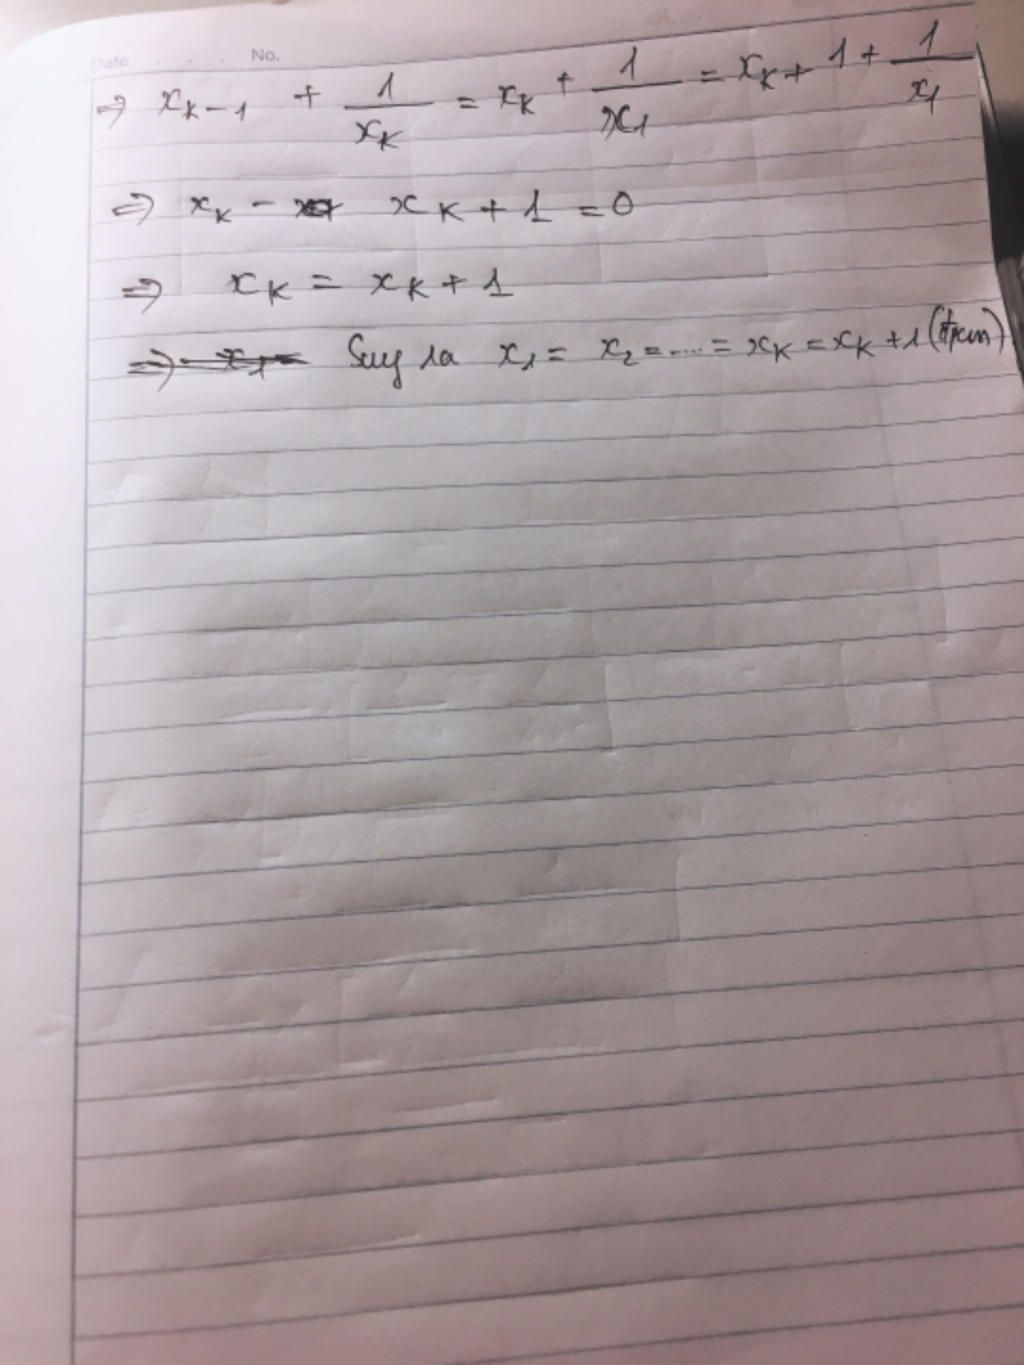 Date . . . . No.
⇒ x_{K-1} + 1/x_K = x_K + 1/x_1 = x_K + 1 + 1/x_1
⇒ x_K - x_K + 1 = 0
⇒ x_K = x_K + 1
⇒ Suy ra x_1 = x_2 = .... = x_K = x_K + 1 (đpcm)